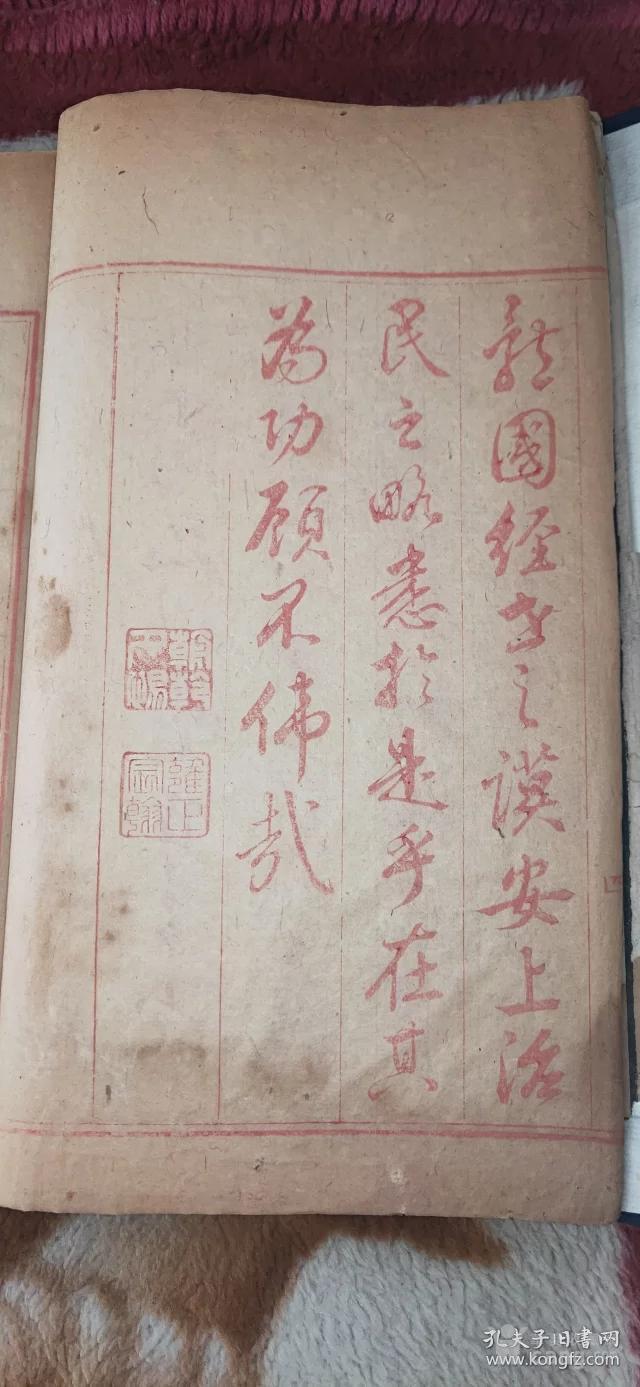 體國經世之謨安上治
民之略悉於是乎在其
為功顧不偉哉
朝乾夕惕
雍正宸翰
孔夫子旧书网
www.kongfz.com